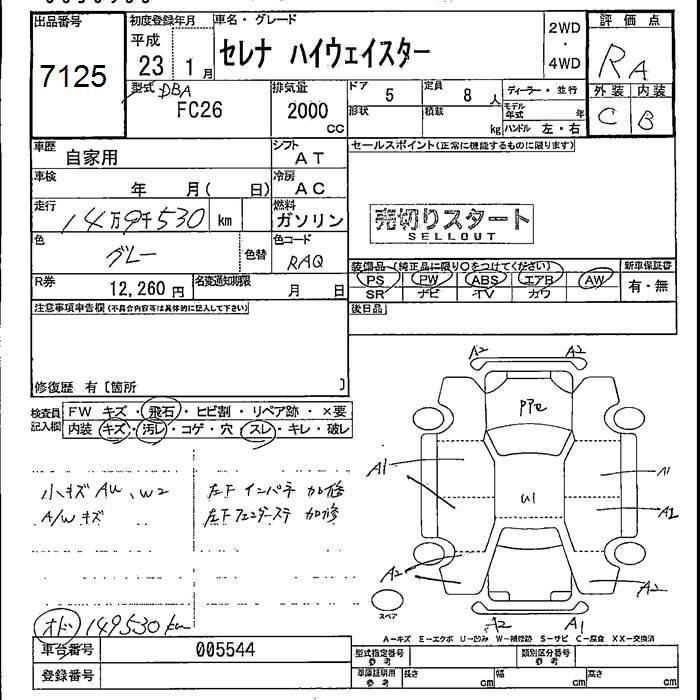 出品番号
7125
初度登録年月
平成
23 1月
車名・グレード
セレナ ハイウェイスター
2WD
・
4WD
評価点
RA
外装 内装
C B
型式
DBA
FC26
排気量
2000
cc
ドア 5
形状
定員 8 人
積載 kg
ディーラー・並行
モデル年式 年
ハンドル 左・右
車歴 自家用
シフト AT
セールスポイント(正常に機能するものに限ります)
車検 年 月( 日)
冷房 AC
走行 14万9千530 km
燃料 ガソリン
売切りスタート
SELLOUT
色 グレー
色替
色コード RAQ
装備品(純正品に限り○をつけてください)
新車保証書
PS PW ABS エアB AW
SR ナビ TV カワ
有・無
R券 12,260円
名変通知期限 月 日
注意事項申告欄(不具合内容等は具体的に記入して下さい)
後日品
修復歴 有〔箇所 〕
検査員記入欄
FW キズ・飛石・ヒビ割・リペア跡・×要
内装 キズ・汚レ・コゲ・穴・スレ・キレ・破レ
小キズ AU、W2
A/W キズ
左F インパネ 加修
左F フェンダーステ 加修
オド 149530km
A2 A2
PPe
A1
A1
U1
A1
A2
A2
スペア
A2 A1
A-キズ E-エクボ U-凹み W-補修跡 S-サビ C-腐食 XX-交換済
車台番号 005544
型式指定番号 参考
類別区分番号 参考
登録番号
車庫証明用 参考
長さ cm
幅 cm
高さ cm